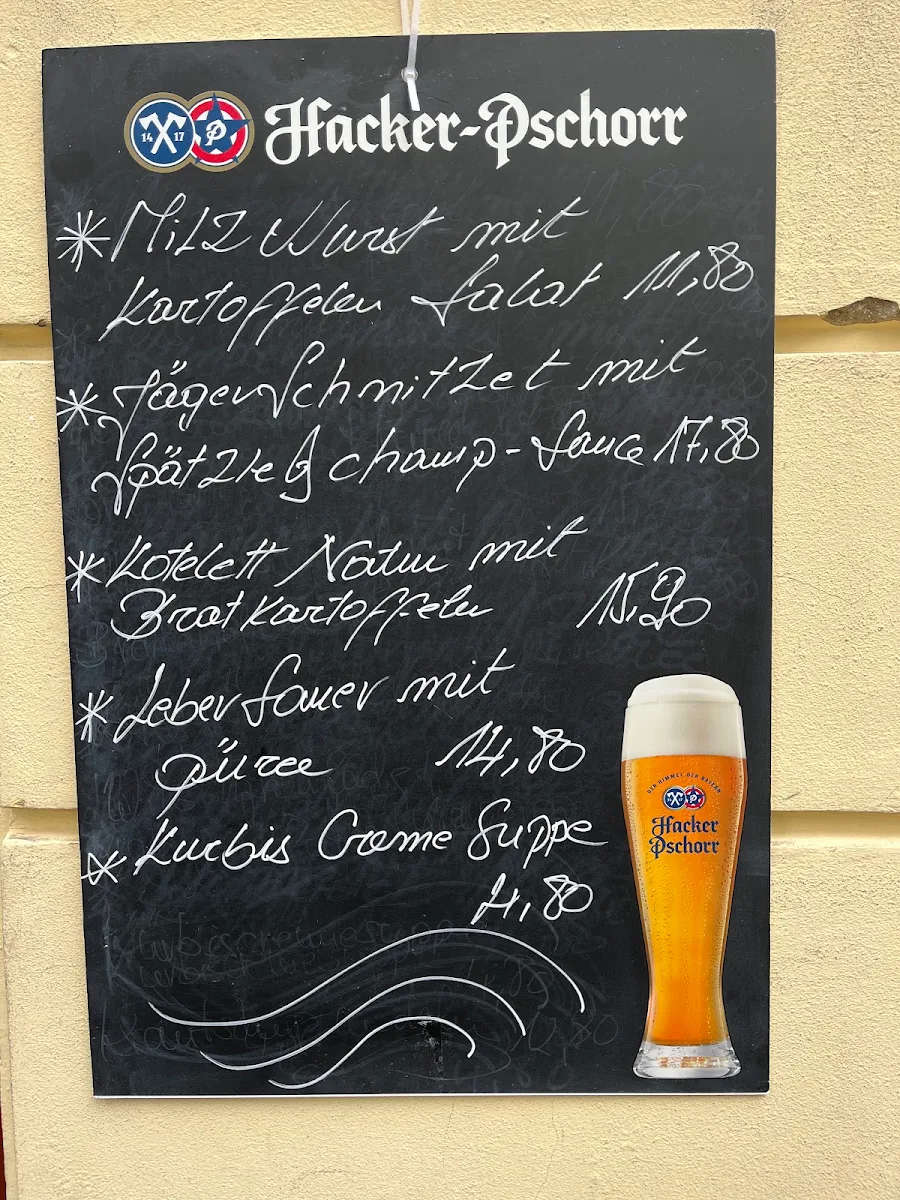 14 17 P Hacker-Pschorr
* Milz Wurst mit
Kartoffelen Salat 11,80
* Jägerschnitzel mit
Spätzle & champ-Sauce 17,80
* Kotelett Natur mit
Bratkartoffelen 15,90
* Leber Sauer mit
püree 14,80
* Kurbis Creme Suppe
4,80
DER HIMMEL DER BAYERN
Hacker
Pschorr